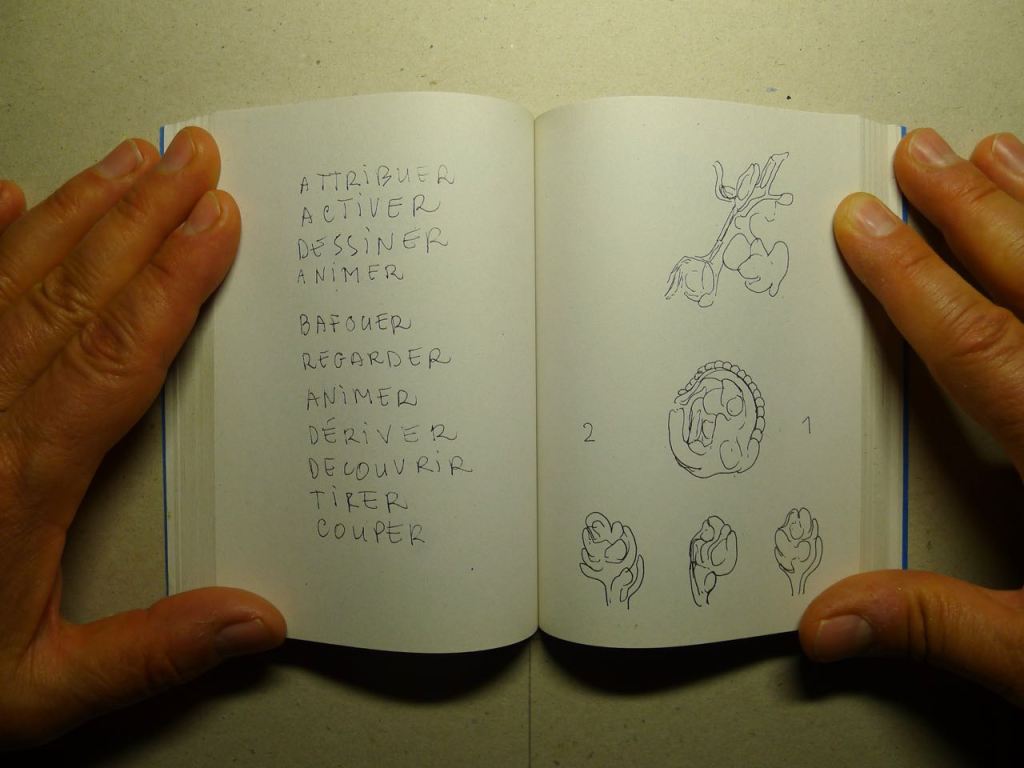 ATTRIBUER
ACTIVER
DESSINER
ANIMER
BAFOUER
REGARDER
ANIMER
DÉRIVER
DECOUVRIR
TIRER
COUPER
2
1